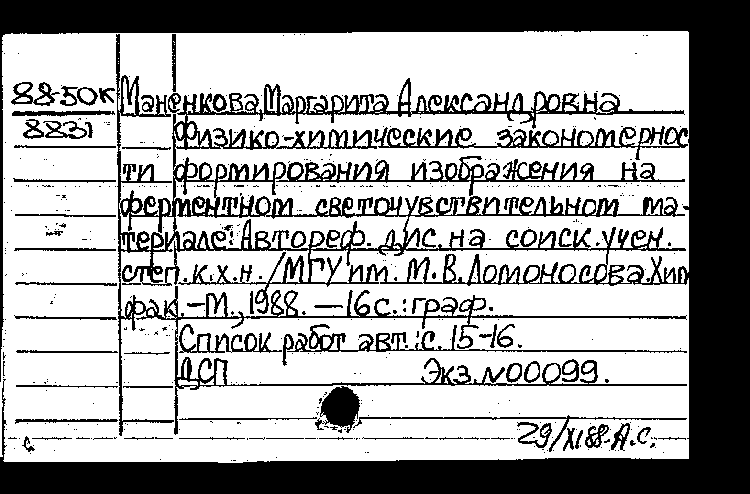 88-50к Маненкова, Маргарита Александровна.
8831 Физико-химические закономернос
ти формирования изображения на
ферментном светочувствительном ма-
териале: Автореф. дис. на соиск. учен.
степ. к.х.н. /МГУ им. М.В. Ломоносова. Хим
фак. -М., 1988. -16 с. : граф.
Список работ авт.: с. 15-16.
ДСП Экз. №00099.
29/XI 88. А.С.